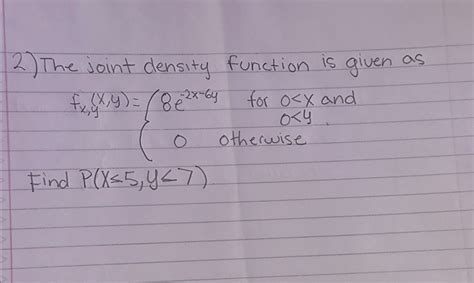 2) The joint density function is given as
f_{x,y}(x,y) = { 8e^{-2x-6y} for 0<x and
0<y.
0 otherwise
Find P(X≤5, y≤7)